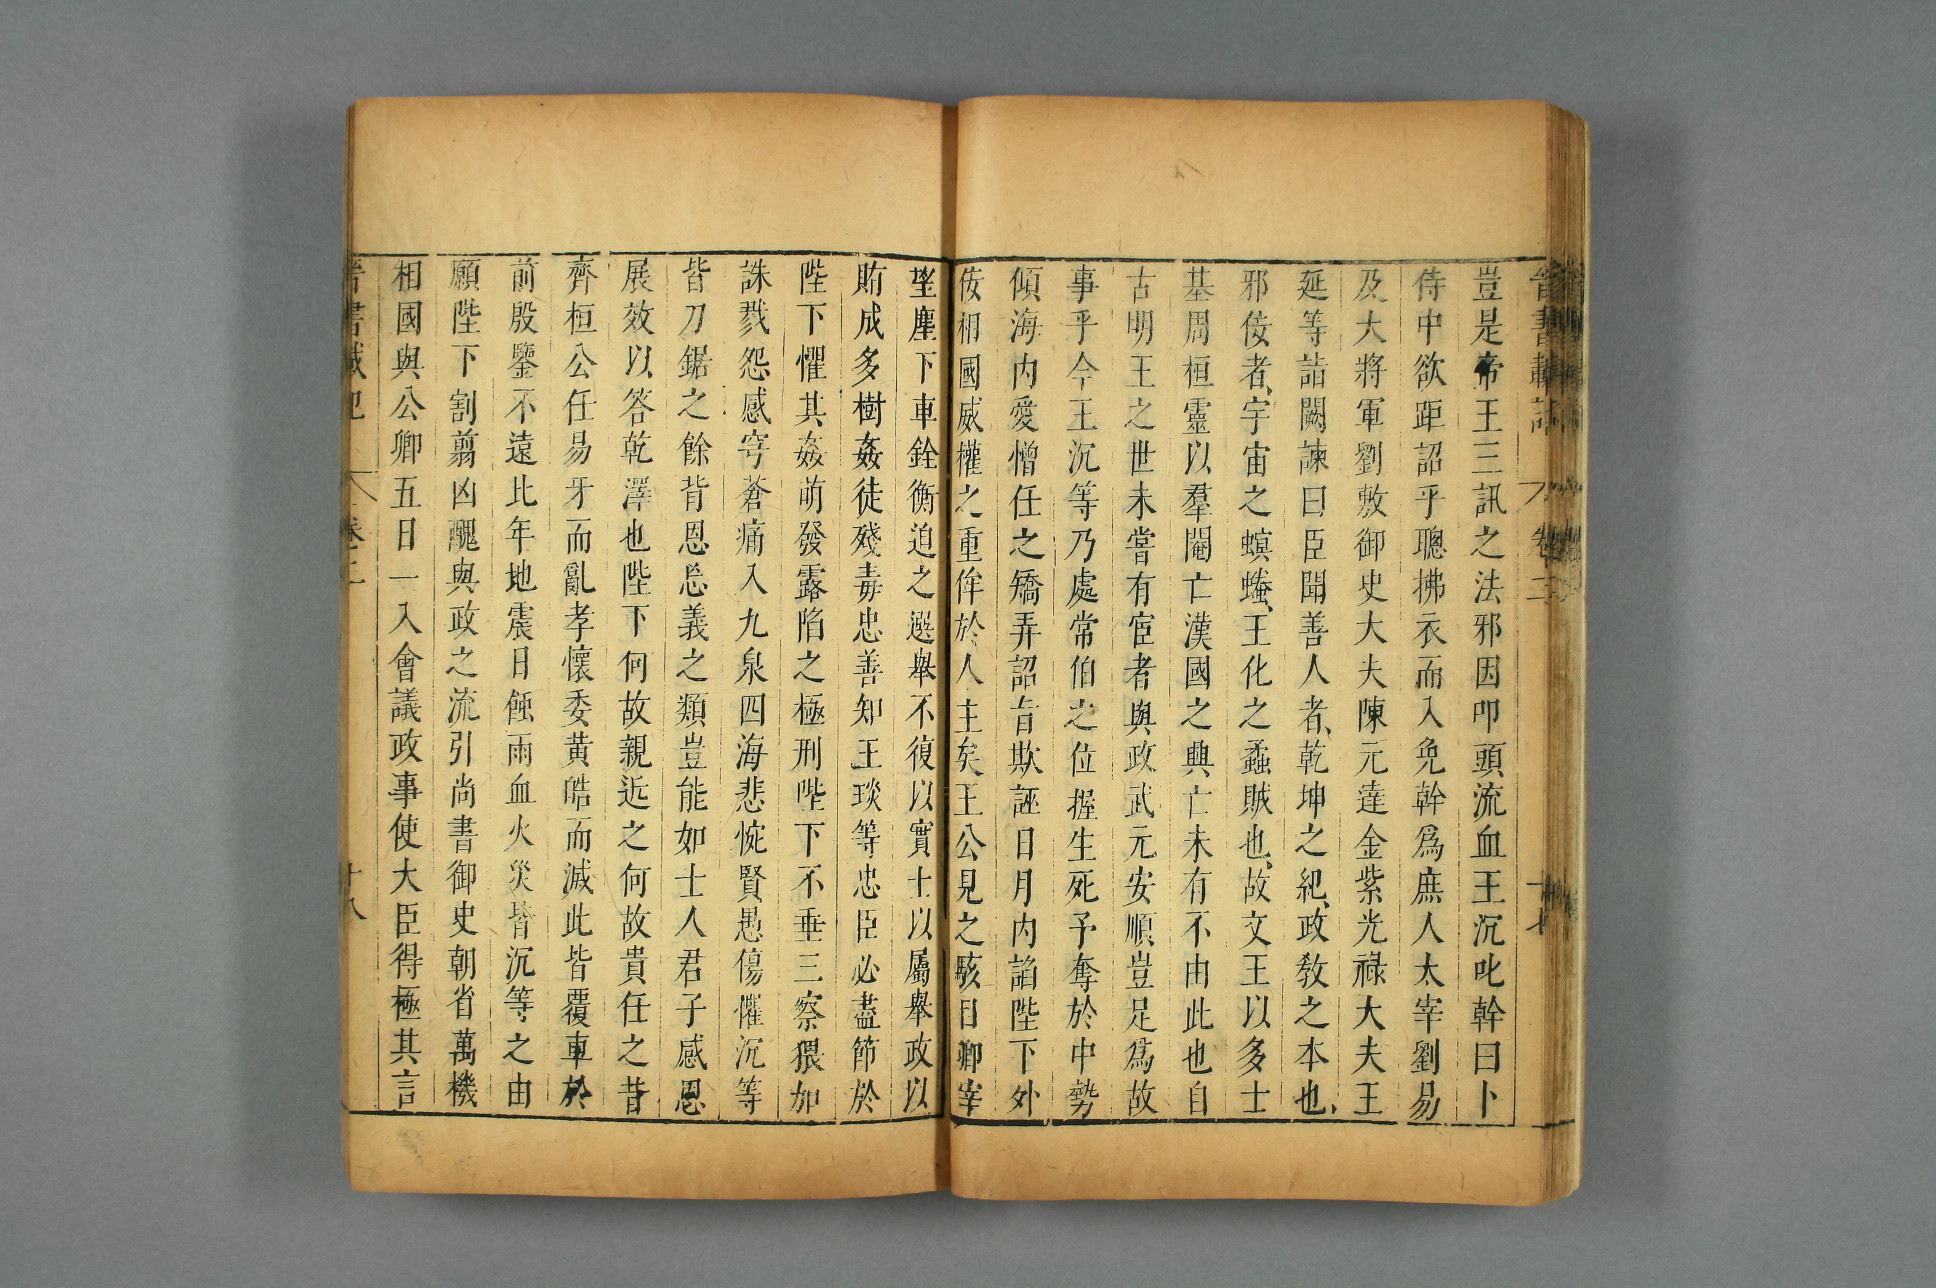 晉書載記 卷二 十七
豈是帝王三訊之法邪因叩頭流血王沉叱幹曰卜
侍中欲距詔乎聰拂衣而入免幹爲庶人太宰劉易
及大將軍劉敷御史大夫陳元達金紫光祿大夫王
延等詣闕諫曰臣聞善人者、乾坤之紀、政敎之本也、
邪佞者、宇宙之螟蟘、王化之蟊賊也、故文王以多士
基周桓靈以羣閹亡漢國之興亡未有不由此也自
古明王之世未嘗有宦者與政武元安順豈足爲故
事乎今王沉等乃處常伯之位握生死予奪於中勢
傾海内愛憎任之矯弄詔旨欺誣日月内諂陛下外
佞相國威權之重侔於人主矣王公見之駭目卿宰
望塵下車銓衡迫之選舉不復以實士以屬舉政以
賄成多樹姦徒殘毒忠善知王琰等忠臣必盡節於
陛下懼其姦萌發露陷之極刑陛下不垂三察猥加
誅戮怨感穹蒼痛入九泉四海悲惋賢愚傷懼沉等
皆刀鋸之餘背恩忘義之類豈能如士人君子感恩
展效以答乾澤也陛下何故親近之何故貴任之昔
齊桓公任易牙而亂孝懷委黃皓而滅此皆覆車於
前殷鑒不遠比年地震日蝕雨血火災皆沉等之由
願陛下割翦凶醜與政之流引尚書御史朝省萬機
相國與公卿五日一入會議政事使大臣得極其言
晉書載記 卷二 十八